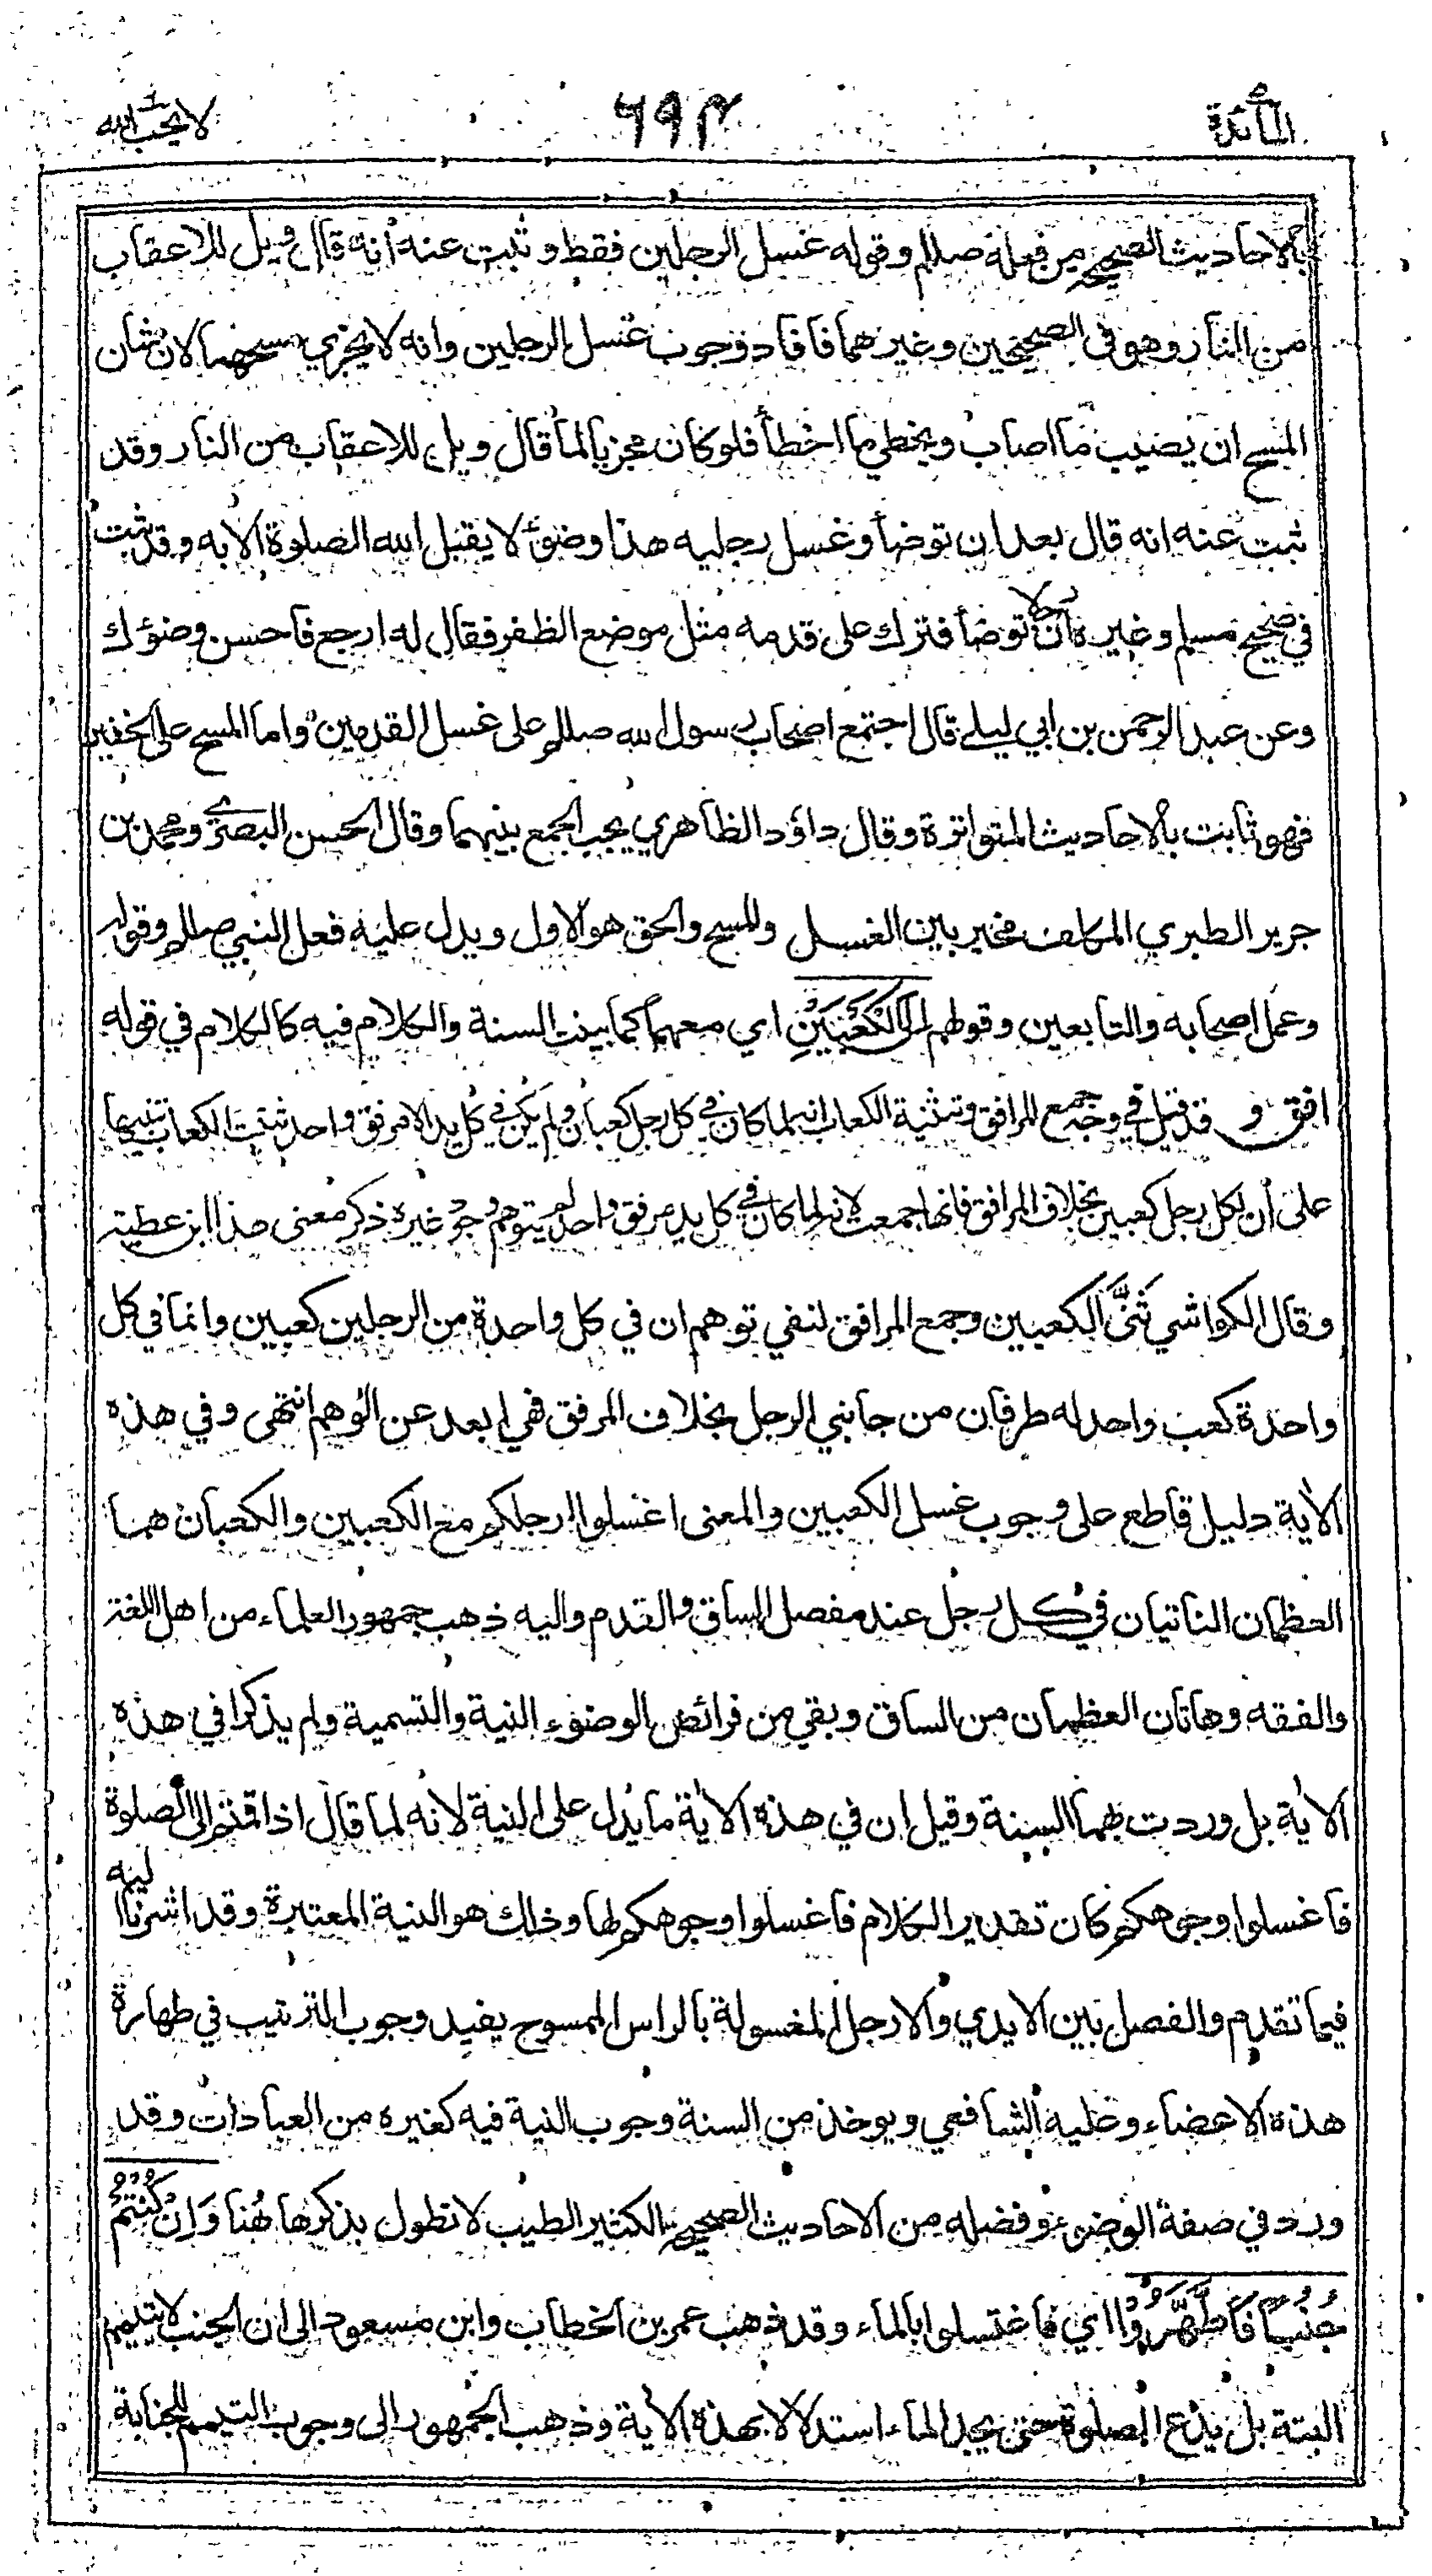 المائدة
٦٩٣
لا يحب الله
بالاحاديث الصحيحة من فعله صللم وقوله غسل الرجلين فقط وثبت عنه انه قال ويل للاعقاب
من النار وهو في الصحيحين وغيرهما فافاد وجوب غسل الرجلين وانه لا يجزي مسحهما لان شان
المسح ان يصيب ما اصاب ويخطي ما اخطأ فلو كان مجزيا لما قال ويل للاعقاب من النار وقد
ثبت عنه انه قال بعد ان توضأ وغسل رجليه هذا وضوء لا يقبل الله الصلوة الا به وقد ثبت
في صحيح مسلم وغيره ان رجلا توضأ فترك على قدمه مثل موضع الظفر فقال له ارجع فاحسن وضوءك
وعن عبد الرحمن بن ابي ليلے قال اجتمع اصحاب رسول الله صللم على غسل القدمين واما المسح على الخفين
فهو ثابت بالاحاديث المتواترة وقال داؤد الظاهري يجب الجمع بينهما وقال الحسن البصرے ومحمد بن
جرير الطبري المكلف مخير بين الغسل والمسح والحق هو الاول ويدل عليه فعل النبي صللم وقوله
وعمل اصحابه والتابعين وقولهم اِلَى الْكَعْبَيْنِ اي معهما كما بينت السنة والكلام فيه كالكلام في قوله
افق و قد قيل في وجه جمع المرافق وتثنية الكعاب انه لما كان في كل رجل كعبان ولم يكن في كل يد الا مرفق واحد ثنيت الكعاب تنبيها
على ان لكل رجل كعبين بخلاف المرافق فانها جمعت لانه لما كان في كل يد مرفق واحد لم يتوهم وجود غيره ذكر معنى هذا ابن عطية
وقال الكواشي ثَنَّى الكعبين وجمع المرافق لنفي توهم ان في كل واحدة من الرجلين كعبين وانما في كل
واحدة كعب واحد له طرفان من جانبي الرجل بخلاف المرفق فهي ابعد عن الوهم انتهى وفي هذه
الاية دليل قاطع على وجوب غسل الكعبين والمعنى اغسلوا ارجلكم مع الكعبين والكعبان هما
العظمان الناتيان في كل رجل عند مفصل الساق والقدم واليه ذهب جمهور العلماء من اهل اللغة
والفقه وهاتان العظمان من الساق وبقي من فرائض الوضوء النية والتسمية ولم يذكرا في هذه
الاية بل وردت بهما السنة وقيل ان في هذه الاية ما يدل على النية لانه لما قال اذا قمتم الى الصلوة
فاغسلوا وجوهكم كان تقدير الكلام فاغسلوا وجوهكم لها وذلك هو النية المعتبرة وقد اشرنا اليه
فيما تقدم والفصل بين الايدي والارجل المغسولة بالراس الممسوح يفيد وجوب الترتيب في طهارة
هذه الاعضاء وعليه الشافعي ويوخذ من السنة وجوب النية فيه كغيره من العبادات وقد
ورد في صفة الوضوء وفضله من الاحاديث الصحيحة الكثير الطيب لا نطول بذكرها هُنا وَاِنْ كُنْتُمْ
جُنُبًا فَاطَّهَّرُوْا اي فاغتسلوا بالماء وقد ذهب عمر بن الخطاب وابن مسعود الى ان الجنب لا يتيمم
البتة بل يدع الصلوة حتى يجد الماء استدلالا بهذه الاية وذهب الجمهور الى وجوب التيمم للجنابة